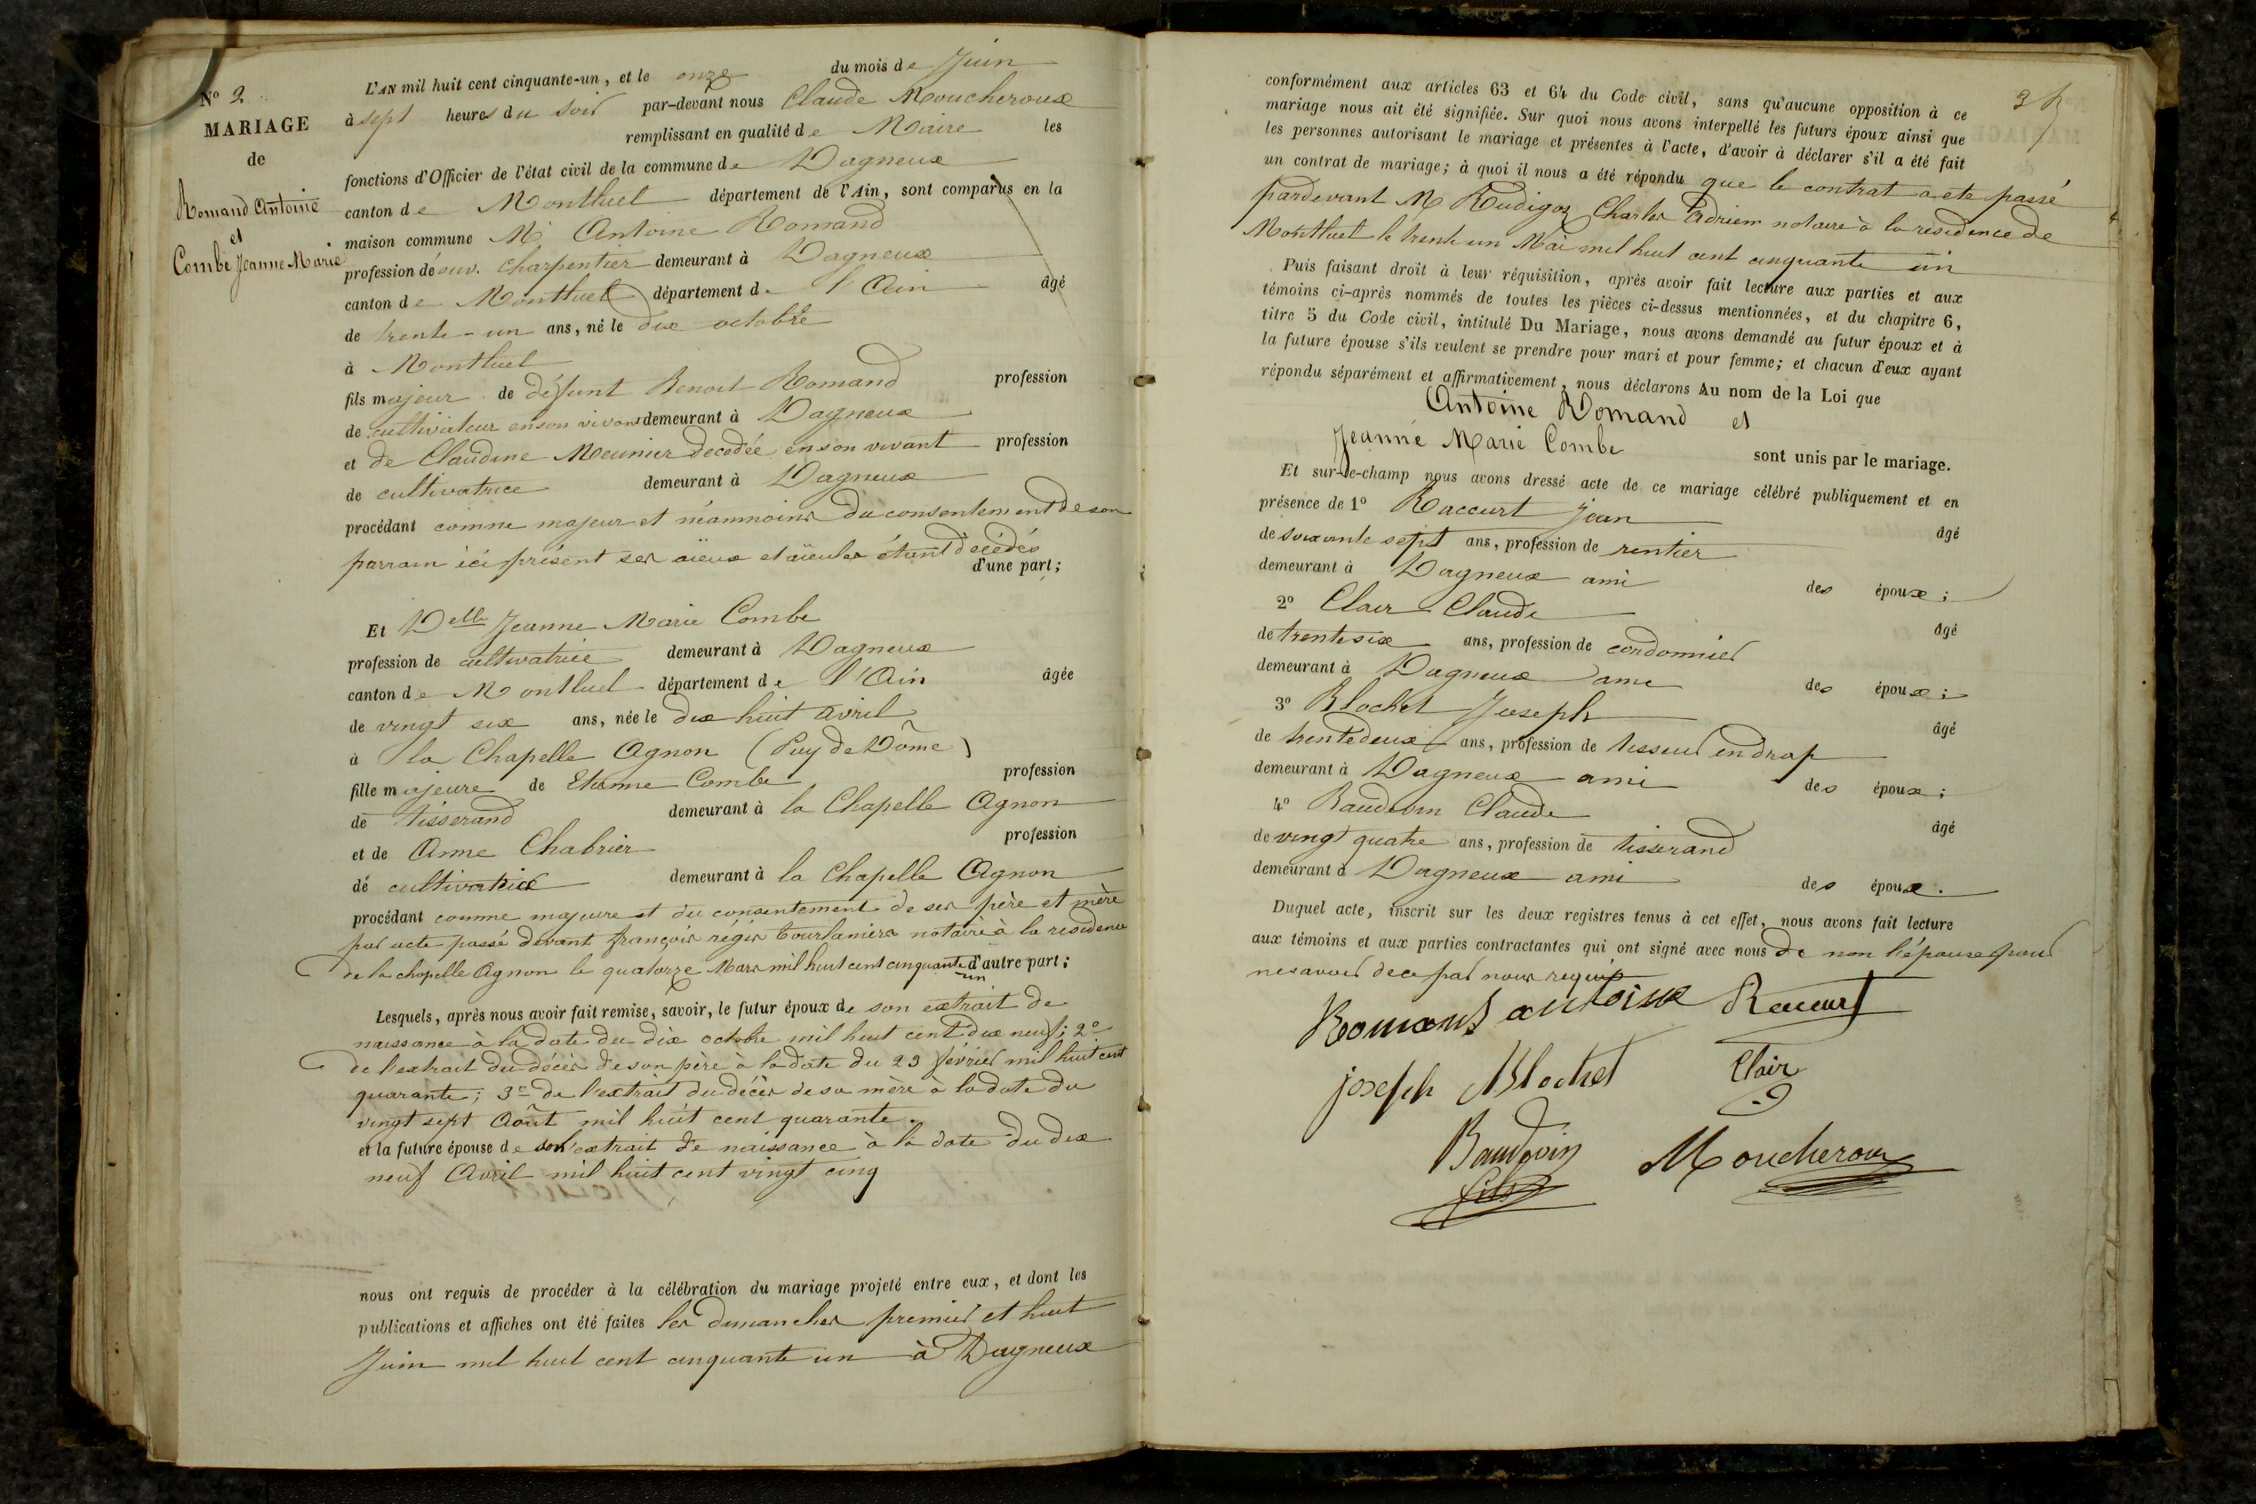 N° 2
MARIAGE
de
Romand Antoine
et
Combe Jeanne Marie
L'AN mil huit cent cinquante-un, et le onze du mois de Juin
à sept heures du soir par-devant nous Claude Moucheroux
remplissant en qualité de Maire les
fonctions d'Officier de l'état civil de la commune de Dagneux
canton de Montluel département de l'Ain, sont comparus en la
maison commune Mr Antoine Romand
profession de ouv. charpentier demeurant à Dagneux
canton de Montluel département de l'Ain âgé
de trente-un ans, né le dix octobre
à Montluel
fils majeur de défunt Benoit Romand profession
de cultivateur en son vivant demeurant à Dagneux
et de Claudine Meunier decedée en son vivant profession
de cultivatrice demeurant à Dagneux
procédant comme majeur et néanmoins du consentement de son
parrain ici présent ses aïeux et aïeules étant décédés
d'une part;
Et Delle Jeanne Marie Combe
profession de cultivatrice demeurant à Dagneux
canton de Montluel département de l'Ain âgée
de vingt six ans, née le dix huit avril
à la Chapelle Agnon (Puy de Dôme)
fille majeure de Etienne Combe profession
de tisserand demeurant à la Chapelle Agnon
et de Anne Chabrier profession
de cultivatrice demeurant à la Chapelle Agnon
procédant comme majeure et du consentement de ses père et mère
par acte passé devant françois régis notaire à la residence
de la chapelle Agnon le quatorze Mars mil huit cent cinquante un d'autre part;
Lesquels, après nous avoir fait remise, savoir, le futur époux de son extrait de
naissance à la date du dix octobre mil huit cent dix neuf; 2°
de l'extrait du décès de son père à la date du 23 février mil huit cent
quarante; 3° de l'extrait du décès de sa mère à la date du
vingt sept Août mil huit cent quarante.
et la future épouse de son extrait de naissance à la date du dix
neuf Avril mil huit cent vingt cinq
nous ont requis de procéder à la célébration du mariage projeté entre eux, et dont les
publications et affiches ont été faites les dimanches premier et huit
Juin mil huit cent cinquante un à Dagneux
conformément aux articles 63 et 64 du Code civil, sans qu'aucune opposition à ce
mariage nous ait été signifiée. Sur quoi nous avons interpellé les futurs époux ainsi que
les personnes autorisant le mariage et présentes à l'acte, d'avoir à déclarer s'il a été fait
un contrat de mariage; à quoi il nous a été répondu que le contrat a ete passé
pardevant M Rudigoz Charles Adrien notaire à la résidence de
Montluel le trente un Mai mil huit cent cinquante un
Puis faisant droit à leur réquisition, après avoir fait lecture aux parties et aux
témoins ci-après nommés de toutes les pièces ci-dessus mentionnées, et du chapitre 6,
titre 5 du Code civil, intitulé Du Mariage, nous avons demandé au futur époux et à
la future épouse s'ils veulent se prendre pour mari et pour femme; et chacun d'eux ayant
répondu séparément et affirmativement, nous déclarons Au nom de la Loi que
Antoine Romand et
Jeanne Marie Combe sont unis par le mariage.
Et sur-le-champ nous avons dressé acte de ce mariage célébré publiquement et en
présence de 1° Raccurt Jean âgé
de soixante sept ans, profession de rentier
demeurant à Dagneux ami des époux;
2° Clair Claude âgé
de trente six ans, profession de cordonnier
demeurant à Dagneux ami des époux;
3° Blochet Joseph âgé
de trente deux ans, profession de tisseur en drap
demeurant à Dagneux ami des époux;
4° Baudouin Claude âgé
de vingt quatre ans, profession de tisserand
demeurant à Dagneux ami des époux.
Duquel acte, inscrit sur les deux registres tenus à cet effet, nous avons fait lecture
aux témoins et aux parties contractantes qui ont signé avec nous de non l'épouse pour
ne savoir de ce par nous requis
Romand antoine Racurt
joseph Blochet Clair
Baudouin Moucheroux
fils